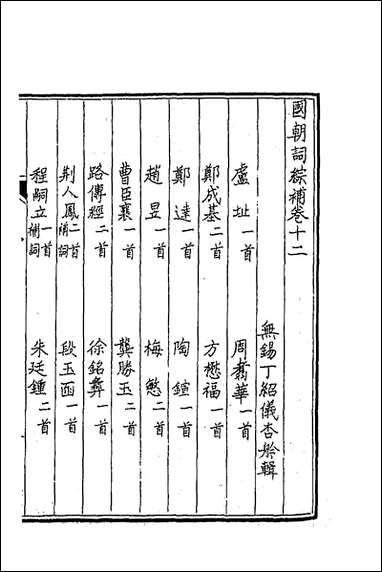 國朝詞綜補卷十二
無錫丁紹儀杏舲輯
盧址一首 周翥華一首
鄭成基二首 方懋福一首
鄭達一首 陶鎔一首
趙昱一首 梅慜二首
曹臣襄一首 龔勝玉二首
路傳經二首 徐銘彝一首
荆人鳳二首補詞 段玉函一首
程嗣立一首補詞 朱廷鍾二首